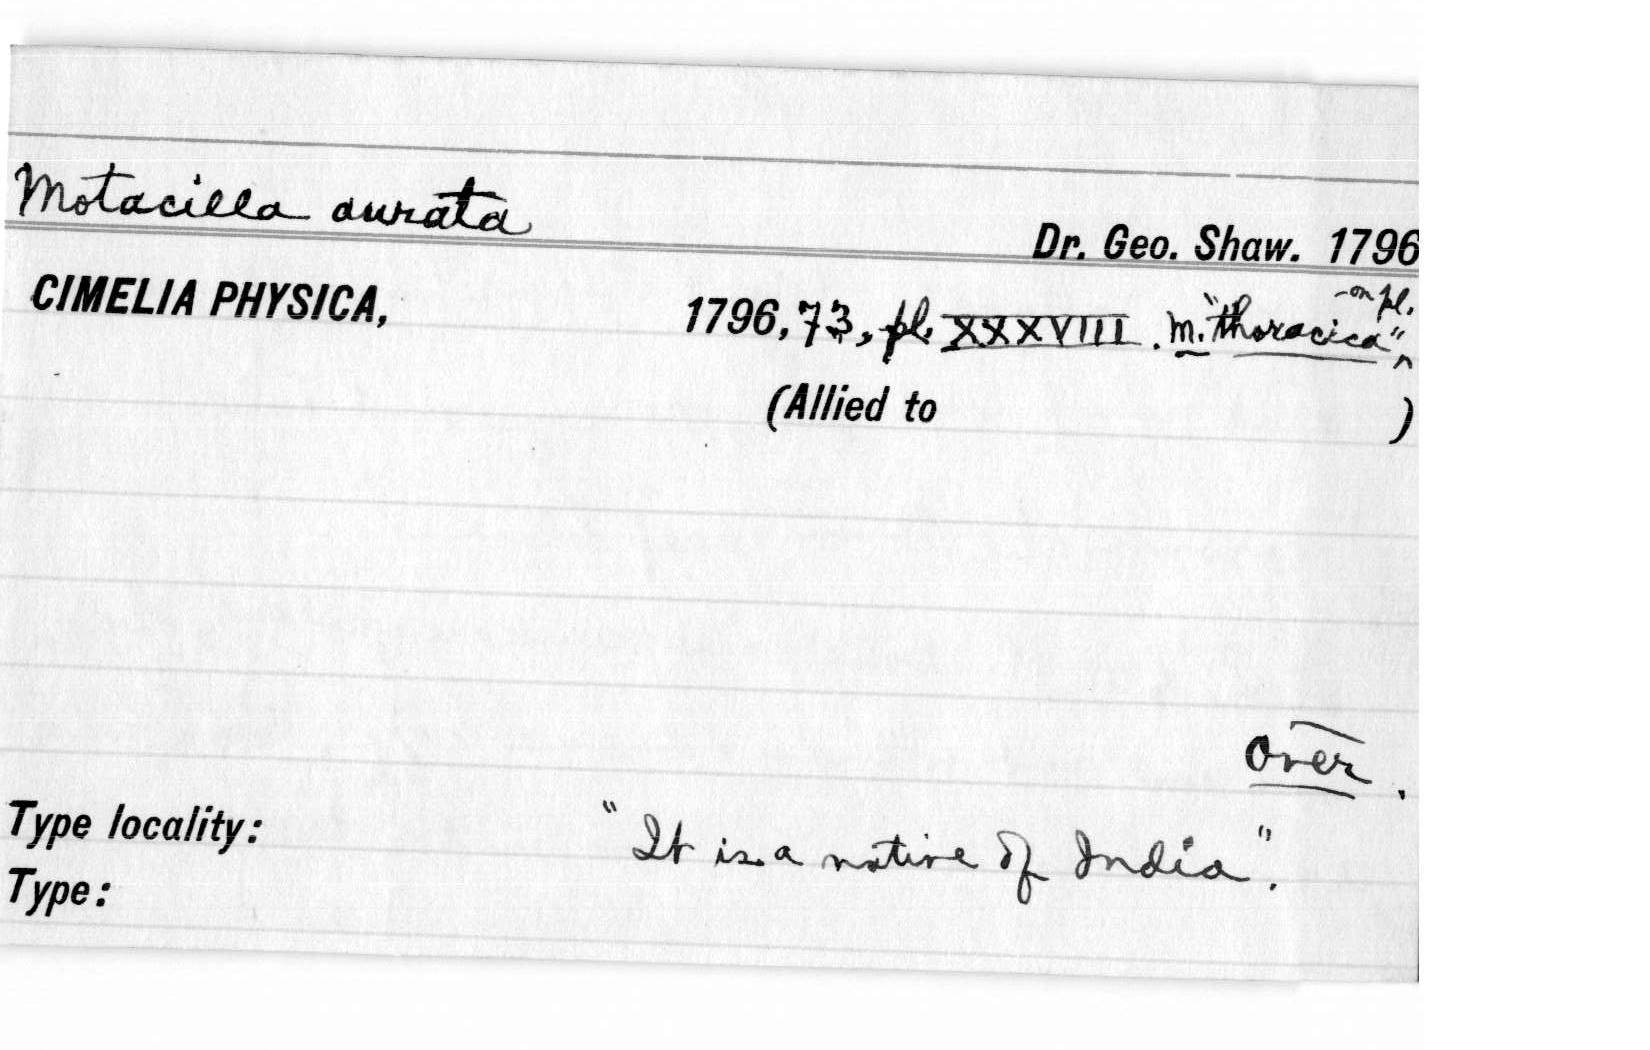 Motacilla aurata
Dr. Geo. Shaw. 1796
CIMELIA PHYSICA, 1796, 73, pl. XXXVIII. M. "thoracica" -on pl.
(Allied to )
over.
Type locality: "It is a native of India".
Type: